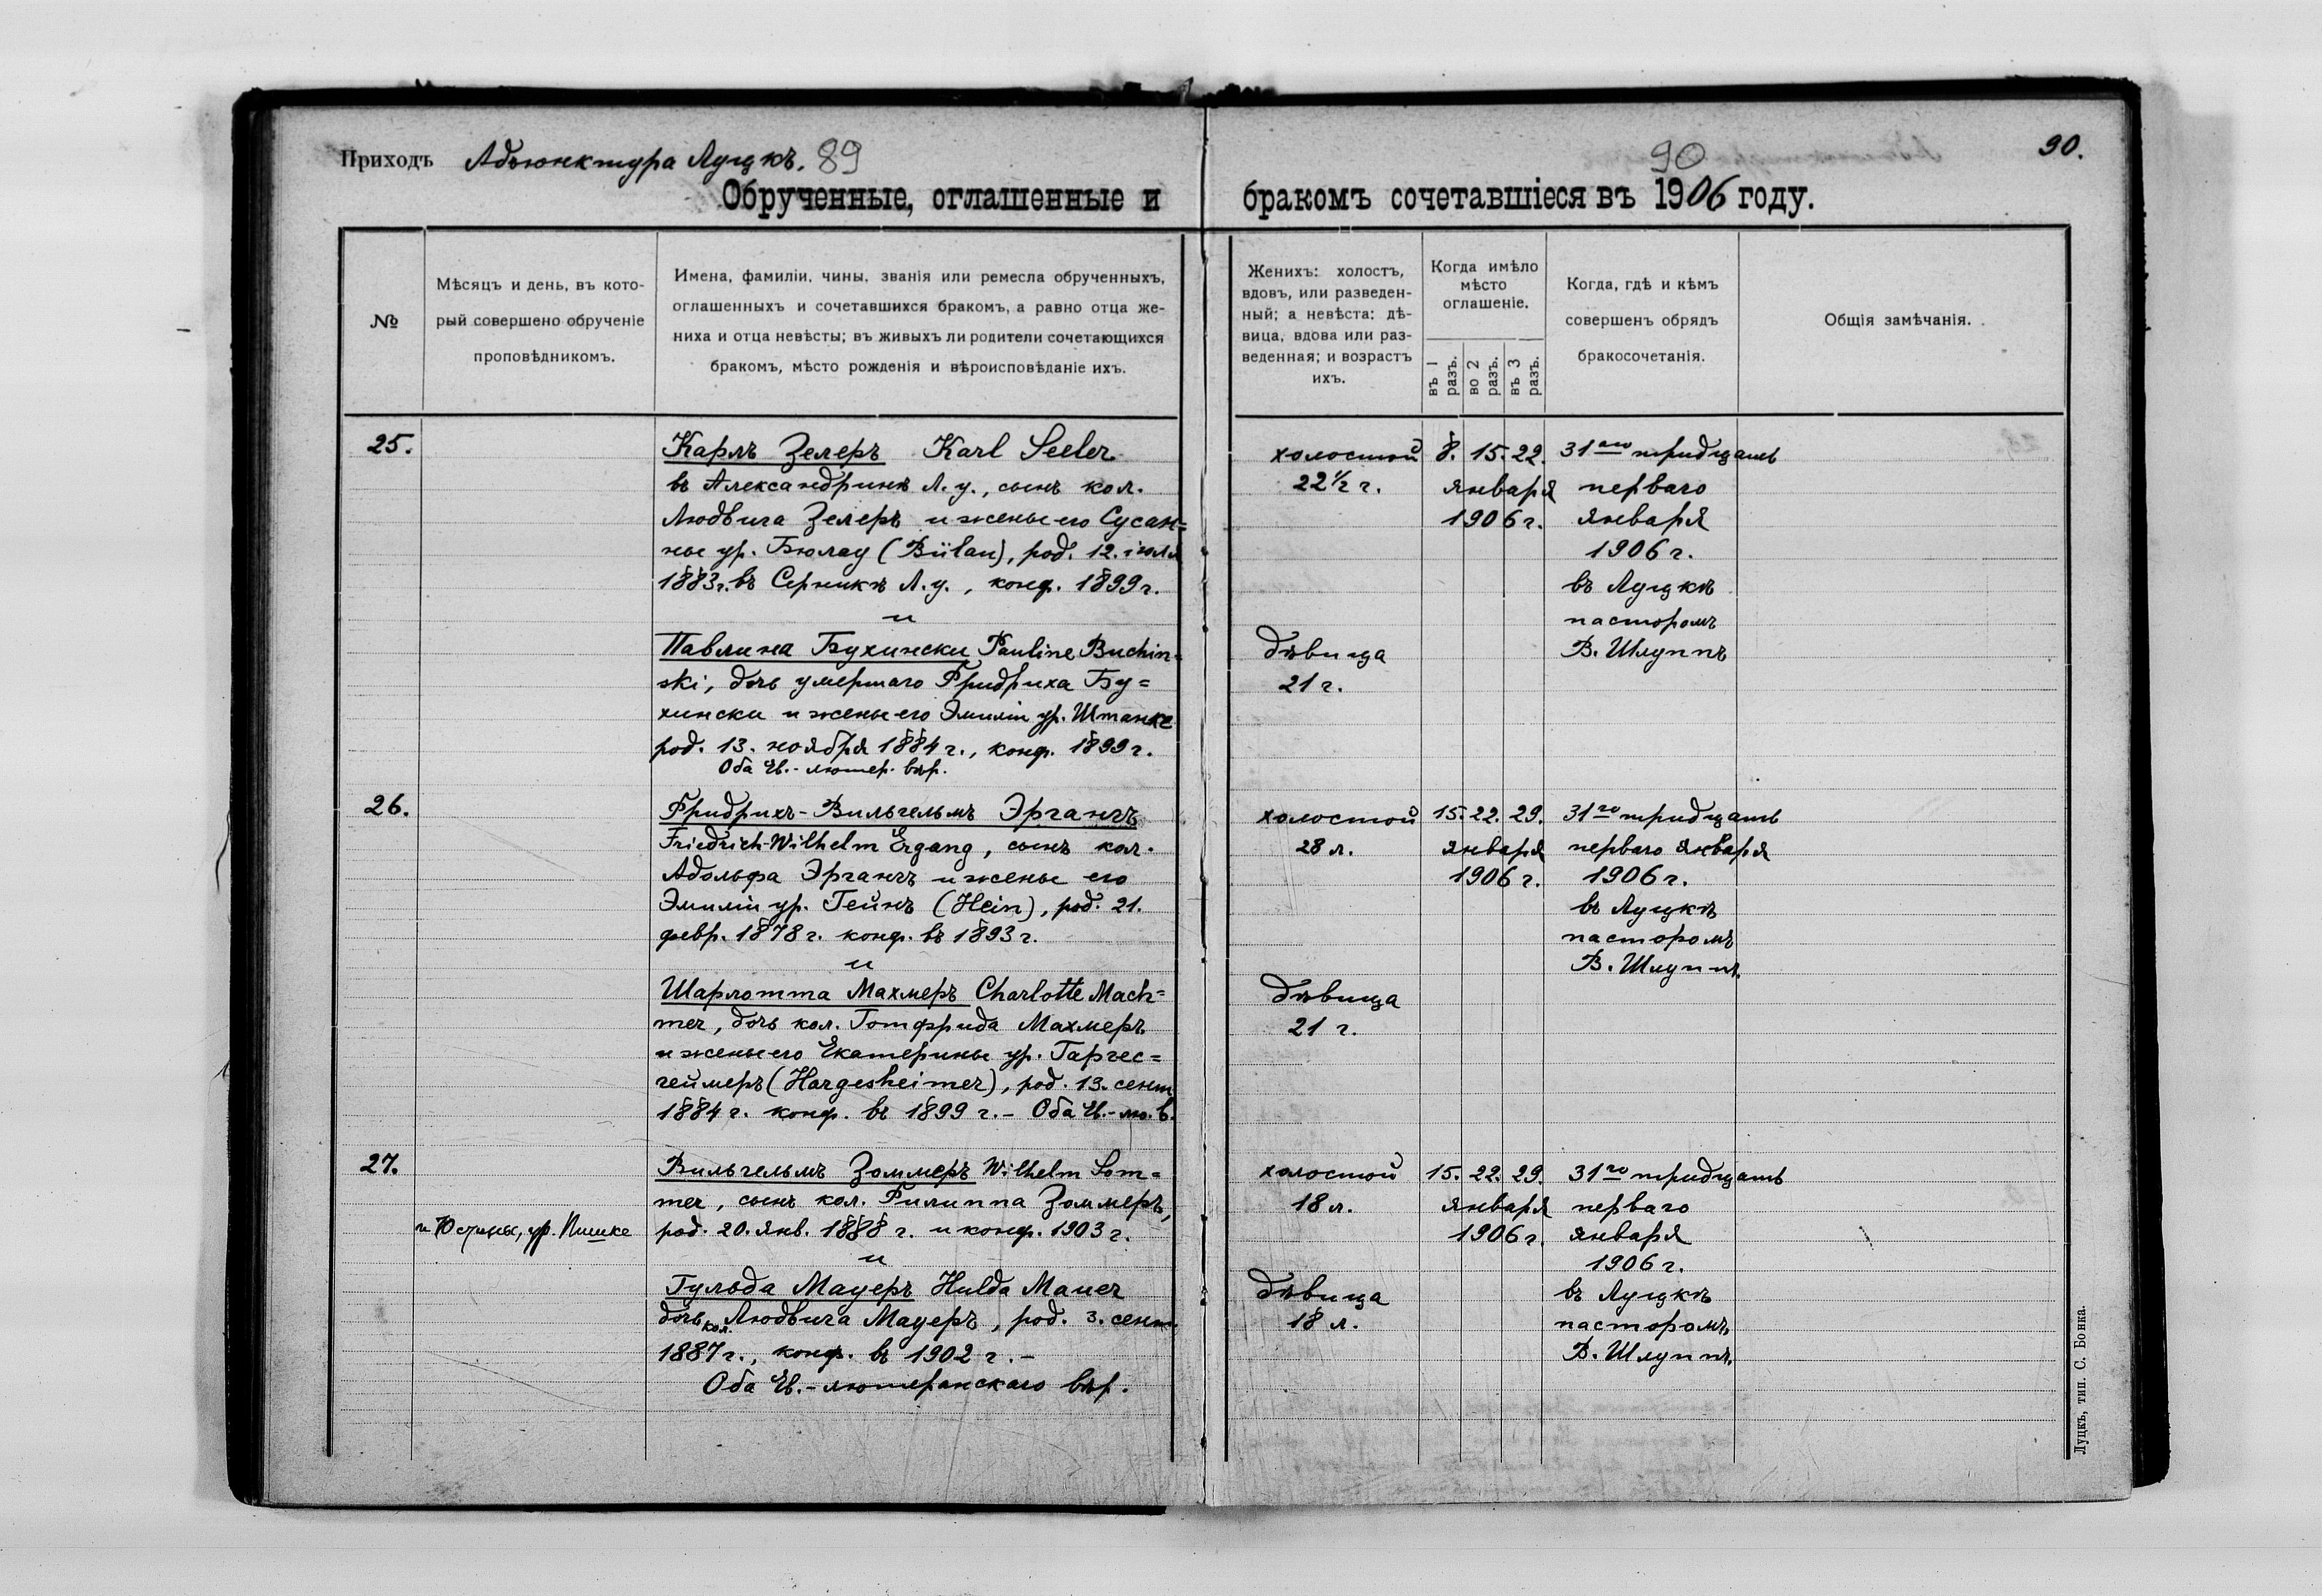 Приходъ Адъюнктура Луцкъ. 89
Обрученные, оглашенные и
№
Мѣсяцъ и день, въ кото-
рый совершено обрученіе
проповѣдникомъ.
Имена, фамиліи, чины, званія или ремесла обрученныхъ,
оглашенныхъ и сочетавшихся бракомъ, а равно отца же-
ниха и отца невѣсты; въ живыхъ ли родители сочетающихся
бракомъ, мѣсто рожденія и вѣроисповѣданіе ихъ.
25.
Карлъ Зелеръ Karl Seeler
въ Александринѣ Л. у., сынъ кол.
Людвига Зелеръ и жены его Сусан=
ны ур. Бюлау (Bülau), род. 12. іюля
1883г. въ Серникѣ Л. у., конф. 1899 г.
и
Павлина Бухински Pauline Buchin=
ski, дочь умершаго Фридриха Бу=
хински и жены его Эмиліи ур. Штанке
род. 13. ноября 1884 г., конф. 1899 г.
Оба Ев.-лютер. вѣр.
26.
Фридрихъ-Вильгельмъ Эргангъ
Friedrich-Wilhelm Ergang, сынъ кол.
Адольфа Эргангъ и жены его
Эмиліи ур. Гейнъ (Hein), род. 21.
февр. 1878 г. конф. въ 1893 г.
и
Шарлотта Махмеръ Charlotte Mach=
mer, дочь кол. Готфрида Махмеръ
и жены его Екатерины ур. Гаргес=
геймеръ (Hargesheimer), род. 13. сент.
1884 г. конф. въ 1899 г. - Оба Ев.-лю. в.
27.
Вильгельмъ Зоммеръ Wilhelm Som=
mer, сынъ кол. Филиппа Зоммеръ,
и Юстины, ур. Пишке
род. 20. янв. 1888 г. и конф. 1903 г.
и
Гульда Мауеръ Hulda Mauer
дочь кол. Людвига Мауеръ, род. 3. сент.
1887 г., конф. въ 1902 г. -
Оба Ев.-лютеранскаго вѣр.
90
90.
бракомъ сочетавшіеся въ 1906 году.
Женихъ: холостъ,
вдовъ, или разведен-
ный; а невѣста: дѣ-
вица, вдова или раз-
веденная; и возрастъ
ихъ.
Когда имѣло
мѣсто
оглашеніе.
въ 1 разъ.
во 2 разъ.
въ 3 разъ.
Когда, гдѣ и кѣмъ
совершенъ обрядъ
бракосочетанія.
Общія замѣчанія.
холостой 8. 15. 22. 31аго тридцать
22½ г. января перваго
1906 г. января
1906 г.
въ Луцкѣ
пасторомъ
дѣвица В. Шлуппъ
21 г.
холостой 15. 22. 29. 31го тридцать
28 л. января перваго января
1906 г. 1906 г.
въ Луцкѣ
пасторомъ
В. Шлуппъ.
дѣвица
21 г.
холостой 15. 22. 29. 31го тридцать
18 л. января перваго
1906 г. января
1906 г.
дѣвица въ Луцкѣ
18 л. пасторомъ
В. Шлуппъ.
Луцкъ, тип. С. Бонка.